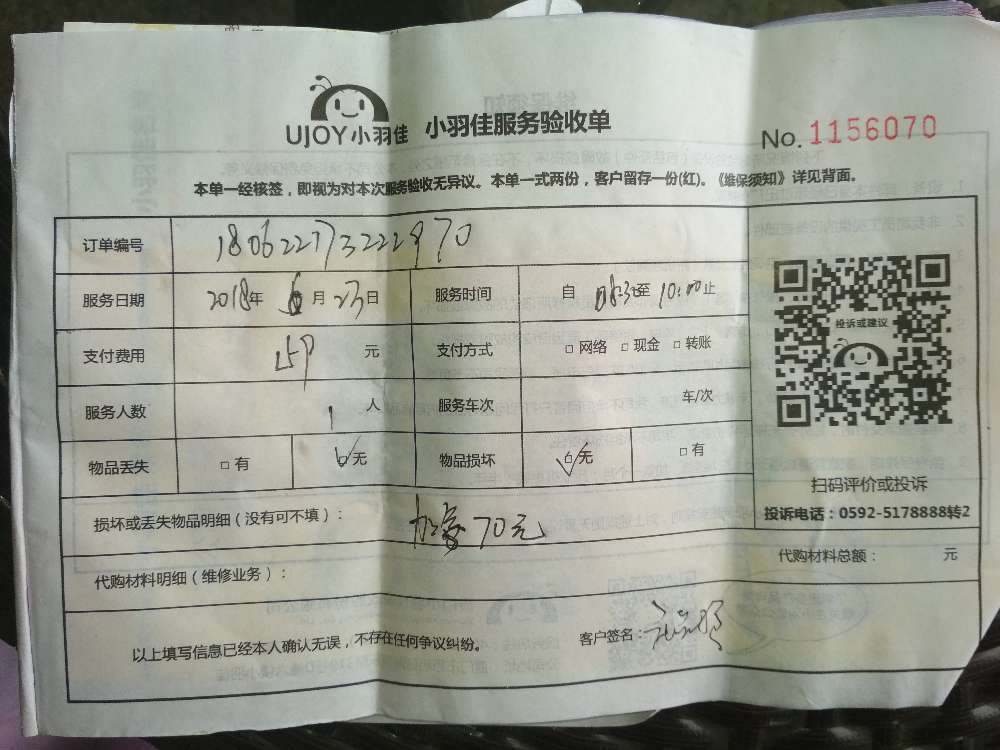 UJOY小羽佳 小羽佳服务验收单
No. 1156070
本单一经核签，即视为对本次服务验收无异议。本单一式两份，客户留存一份(红)。《维保须知》详见背面。
订单编号
服务日期 2018年 6月 23日 服务时间 自 08:30至 10:00止
投诉或建议
支付费用 元 支付方式 □ 网络 □ 现金 □ 转账
服务人数 1 人 服务车次 车/次
物品丢失 □ 有 ☑ 无 物品损坏 ☑ 无 □ 有
扫码评价或投诉
投诉电话：0592-5178888转2
损坏或丢失物品明细（没有可不填）： 70元
代购材料明细（维修业务）： 代购材料总额： 元
以上填写信息已经本人确认无误，不存在任何争议纠纷。 客户签名：